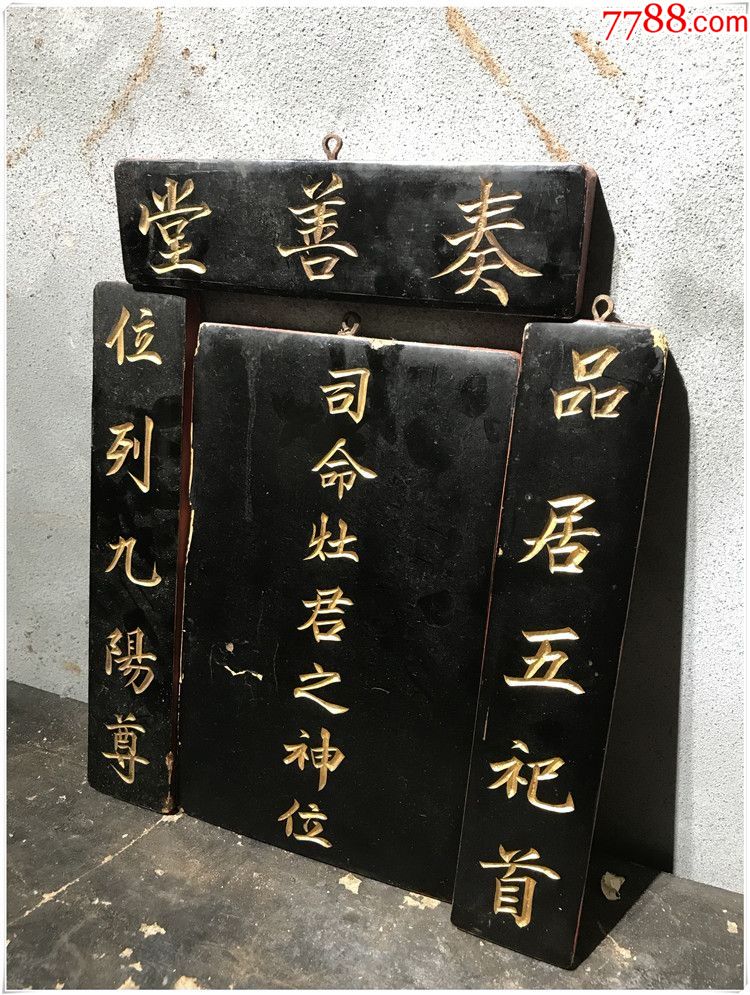 7788.com
奏善堂
品居五祀首
司命灶君之神位
位列九陽尊